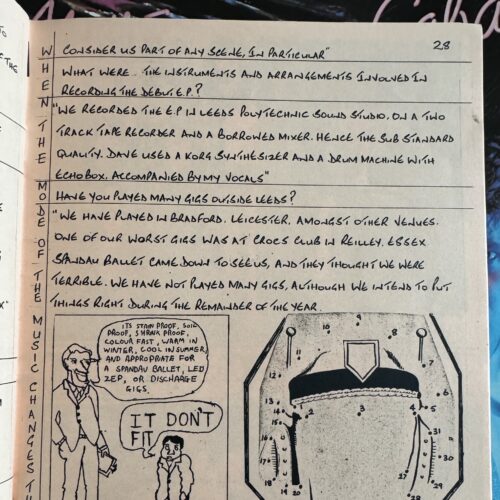 28
CONSIDER US PART OF ANY SCENE, IN PARTICULAR"
WHAT WERE THE INSTRUMENTS AND ARRANGEMENTS INVOLVED IN
RECORDING THE DEBUT E.P.?
"WE RECORDED THE E.P IN LEEDS POLYTECHNIC SOUND STUDIO, ON A TWO
TRACK TAPE RECORDER AND A BORROWED MIXER. HENCE THE SUB STANDARD
QUALITY. DAVE USED A KORG SYNTHESIZER AND A DRUM MACHINE WITH
ECHO BOX, ACCOMPANIED BY MY VOCALS"
HAVE YOU PLAYED MANY GIGS OUTSIDE LEEDS?
"WE HAVE PLAYED IN BRADFORD, LEICESTER, AMONGST OTHER VENUES.
ONE OF OUR WORST GIGS WAS AT CROCS CLUB IN REILEY, ESSEX
SPANDAU BALLET CAME DOWN TO SEE US, AND THEY THOUGHT WE WERE
TERRIBLE. WE HAVE NOT PLAYED MANY GIGS, ALTHOUGH WE INTEND TO PUT
THINGS RIGHT DURING THE REMAINDER OF THE YEAR.
WHEN THE MODE OF THE MUSIC CHANGES
ITS STAIN PROOF, SOIL
PROOF, SHRINK PROOF,
COLOUR FAST, WARM IN
WINTER, COOL IN SUMMER,
AND APPROPRIATE FOR
A SPANDAU BALLET, LED
ZEP, OR DISCHARGE
GIGS.
IT DON'T
FIT
10
9
8
11
7
12
6
13
2
3
4
14
1
5
15
16
17
31
30
29
18
28
27
19
20